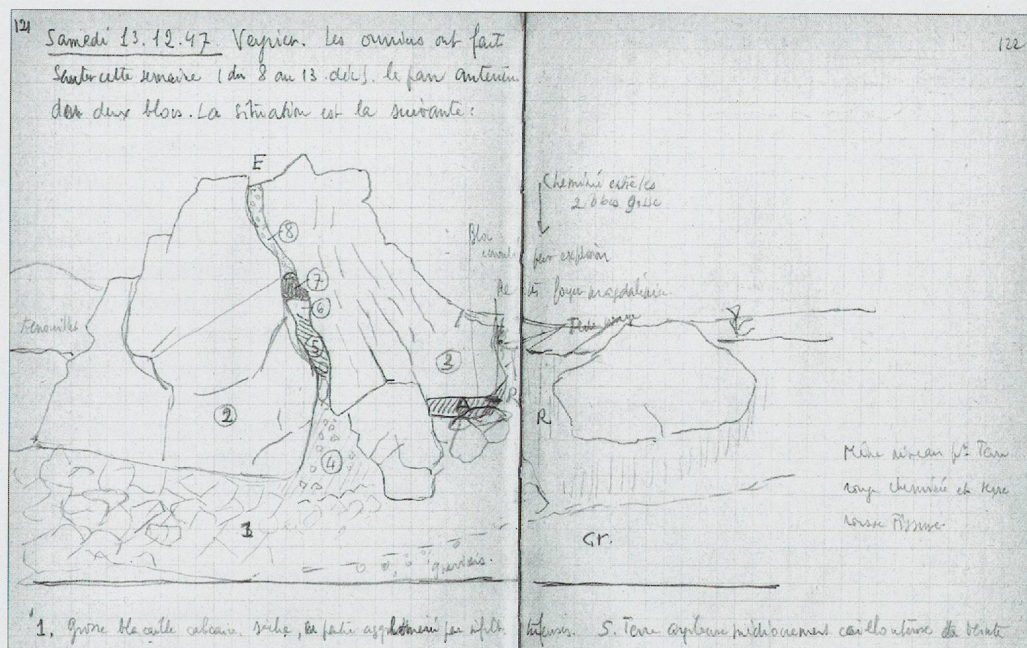 121
Samedi 13.12.47 Veyrier. Les ouvriers ont fait
Sauter cette semaine (du 8 au 13 déc). le pan antérieur
des deux blocs. La situation est la suivante:
122
E
Cheminée entre les
2 blocs
8
Bloc
par explosion
7
foyer magdalénien
6
5
3
A
R
R
2
4
Même niveau pr Terre
rouge cheminée et terre
rousse Fissure.
1
Gr.
graviers.
1. Grosse blocaille calcaire, sèche, en partie agglomérée par infilt.
5. Terre argileuse médiocrement caillouteuse de teinte